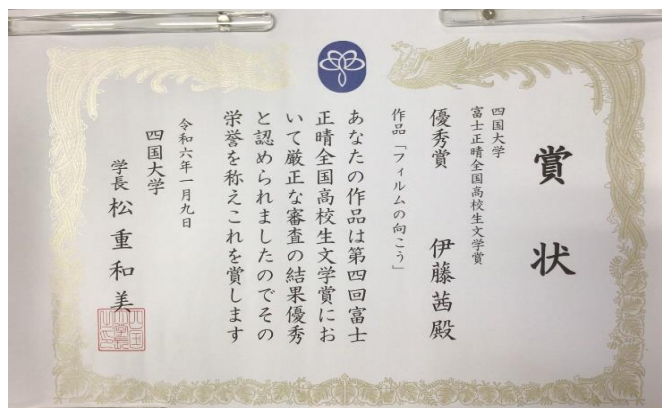 賞状
四国大学
富士正晴全国高校生文学賞
優秀賞 伊藤茜殿
作品「フィルムの向こう」
あなたの作品は第四回富士
正晴全国高校生文学賞にお
いて厳正な審査の結果優秀
と認められましたのでその
栄誉を称えこれを賞します
令和六年一月九日
四国大学
学長 松重和美